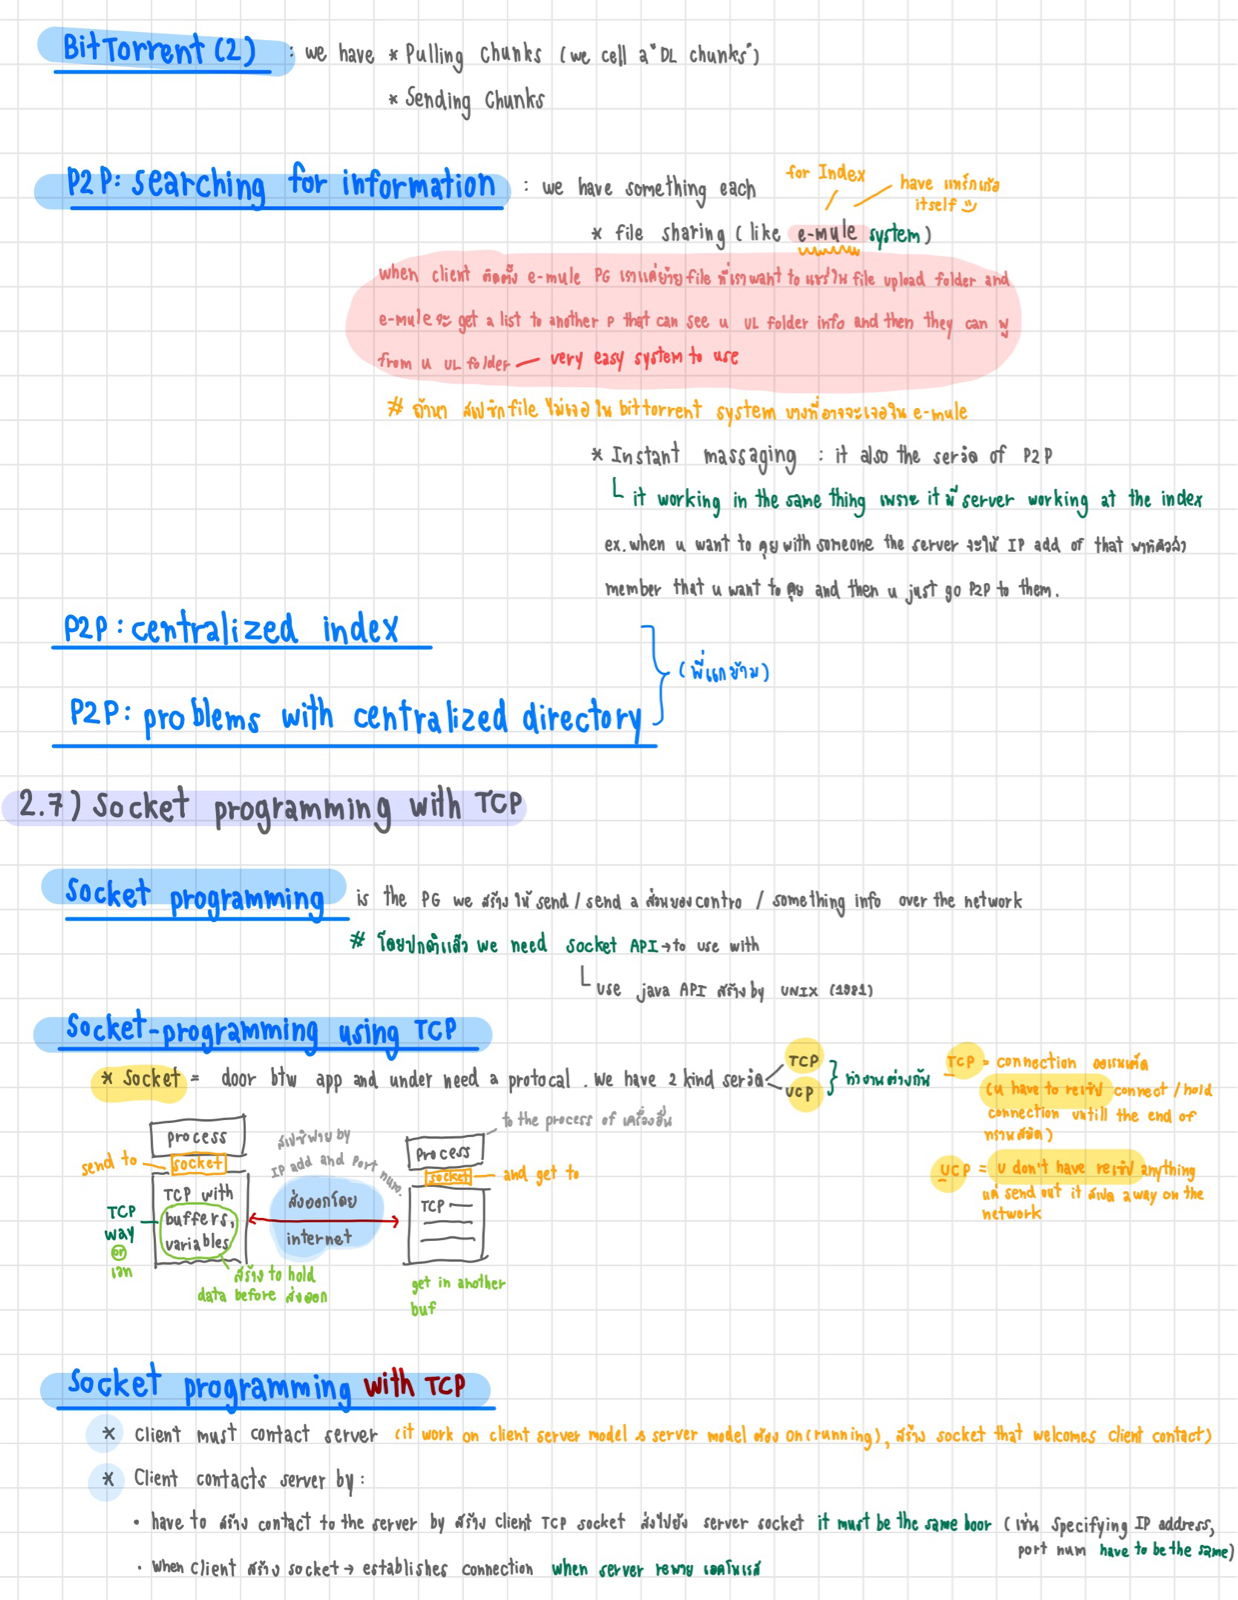 BitTorrent (2) : we have * Pulling Chunks (we cell a "DL chunks")
* Sending Chunks
for Index
have แทร็กเก้อ
itself
P2P: searching for information : we have something each
* file sharing (like e-mule system)
when client ติดตั้ง e-mule PG เราแค่ย้าย file ที่เรา want to แชร์ใน file upload folder and
e-mule จะ get a list to another P that can see u UL folder info and then they can
from u UL folder — very easy system to use
# ถ้าหา สเปซิก file ไม่เจอใน bittorrent system บางที่อาจจะเจอใน e-mule
* Instant massaging : it also the serวิด of P2P
it working in the same thing เพราะ it มี server working at the index
ex. when u want to คุย with someone the server จะให้ IP add of that พาทิคิวล่า
member that u want to คุย and then u just go P2P to them.
P2P: centralized index
(พี่แกข้าม)
P2P: problems with centralized directory
2.7) Socket programming with TCP
Socket programming is the PG we สร้าง ให้ send / send a ส่วนของ contro / something info over the network
# โดยปกติแล้ว we need Socket API → to use with
use java API สร้าง by UNIX (1981)
Socket-programming using TCP
* Socket = door btw app and under need a protocal. We have 2 kind serวิด
TCP
UCP
ทำงานต่างกัน
TCP = connection ออเรนเต็ด
(u have to connect / hold
connection untill the end of
ทรานสมิต)
UCP = u don't have anything
แค่ send out it away on the
network
to the process of เครื่องอื่น
process
send to
socket
สเปซิฟาย by
IP add and Port num.
Process
socket
and get to
TCP with
buffers,
variables
TCP
way
or
เลน
ส่งออกโดย
internet
TCP
สร้าง to hold
data before ส่งออก
get in another
buf
Socket programming with TCP
* Client must contact server (it work on client server model & server model ต้อง on (running), สร้าง socket that welcomes client contact)
* Client contacts server by :
• have to สร้าง contact to the server by สร้าง client TCP socket ส่งไปยัง server socket it must be the same boor (เช่น Specifying IP address,
port num have to be the same)
• When Client สร้าง socket → establishes connection when server